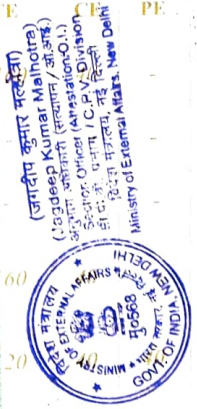 E CE PE
(जगदीप कुमार मल्होत्रा)
(Jagdeep Kumar Malhotra)
अनुभाग अधिकारी (सत्यापन / ओ.आई.)
Section Officer (Attestation-O.I.)
/ C.P.V. Division
विदेश मंत्रालय, नई दिल्ली
Ministry of External Affairs, New Delhi
विदेश मंत्रालय
MINISTRY OF EXTERNAL AFFAIRS
मु0568
GOVT. OF INDIA, NEW DELHI
60
20